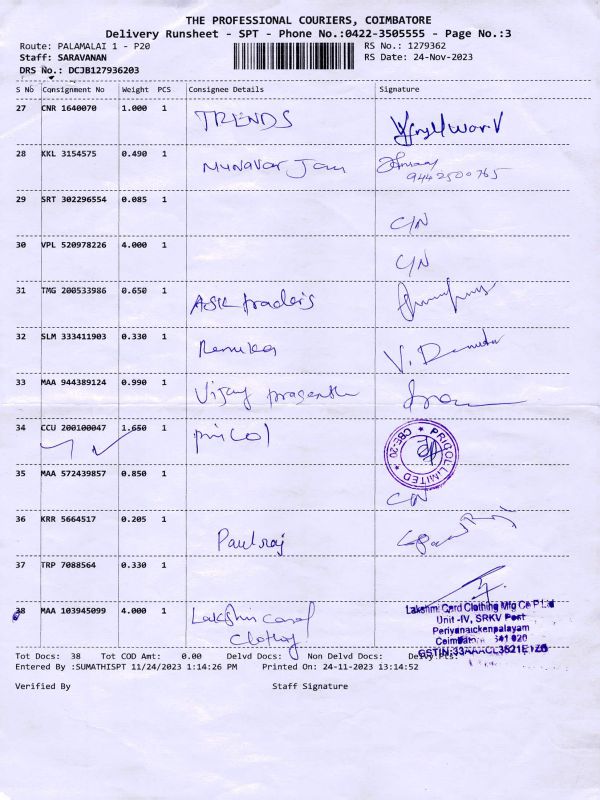 THE PROFESSIONAL COURIERS, COIMBATORE
Delivery Runsheet - SPT - Phone No.:0422-3505555 - Page No.:3
Route: PALAMALAI 1 - P20 RS No.: 1279362
Staff: SARAVANAN RS Date: 24-Nov-2023
DRS No.: DCJB127936203
S No Consignment No Weight PCS Consignee Details Signature
27 CNR 1640070 1.000 1 TRENDS
28 KKL 3154575 0.490 1 Munavar Jan
9442500765
29 SRT 302296554 0.085 1 C/N
30 VPL 520978226 4.000 1 C/N
31 TMG 200533986 0.650 1 ASK traders
32 SLM 333411903 0.330 1 Renuka V.
33 MAA 944389124 0.990 1 Vijay prasanth
34 CCU 200100047 1.650 1 pricol
PRICOL LIMITED * CBE-20 *
35 MAA 572439857 0.850 1 C/N
36 KRR 5664517 0.205 1 Paulraj
37 TRP 7088564 0.330 1
38 MAA 103945099 4.000 1 Lakshmi card
clothing
Lakshmi Card Clothing Mfg Co P Ltd
Unit -IV, SRKV Post
Periyanaickenpalayam
Coimbatore 641 020
Tot Docs: 38 Tot COD Amt: 0.00 Delvd Docs: Non Delvd Docs: Delvy.Pts:
Entered By :SUMATHISPT 11/24/2023 1:14:26 PM Printed On: 24-11-2023 13:14:52
Verified By Staff Signature